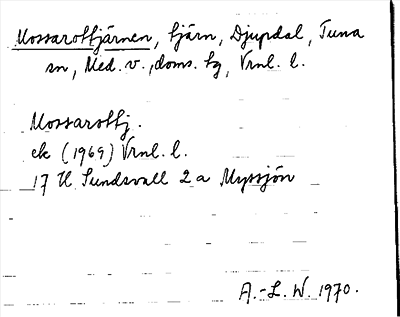 Mossarottjärnen, tjärn, Djupdal, Tuna
sn, Med. v., doms. hg, Vrnl. l.
Mossarottj.
ek (1969) Vrnl. l.
17 H Sundsvall 2 a Myssjön
A.-L. W. 1970.